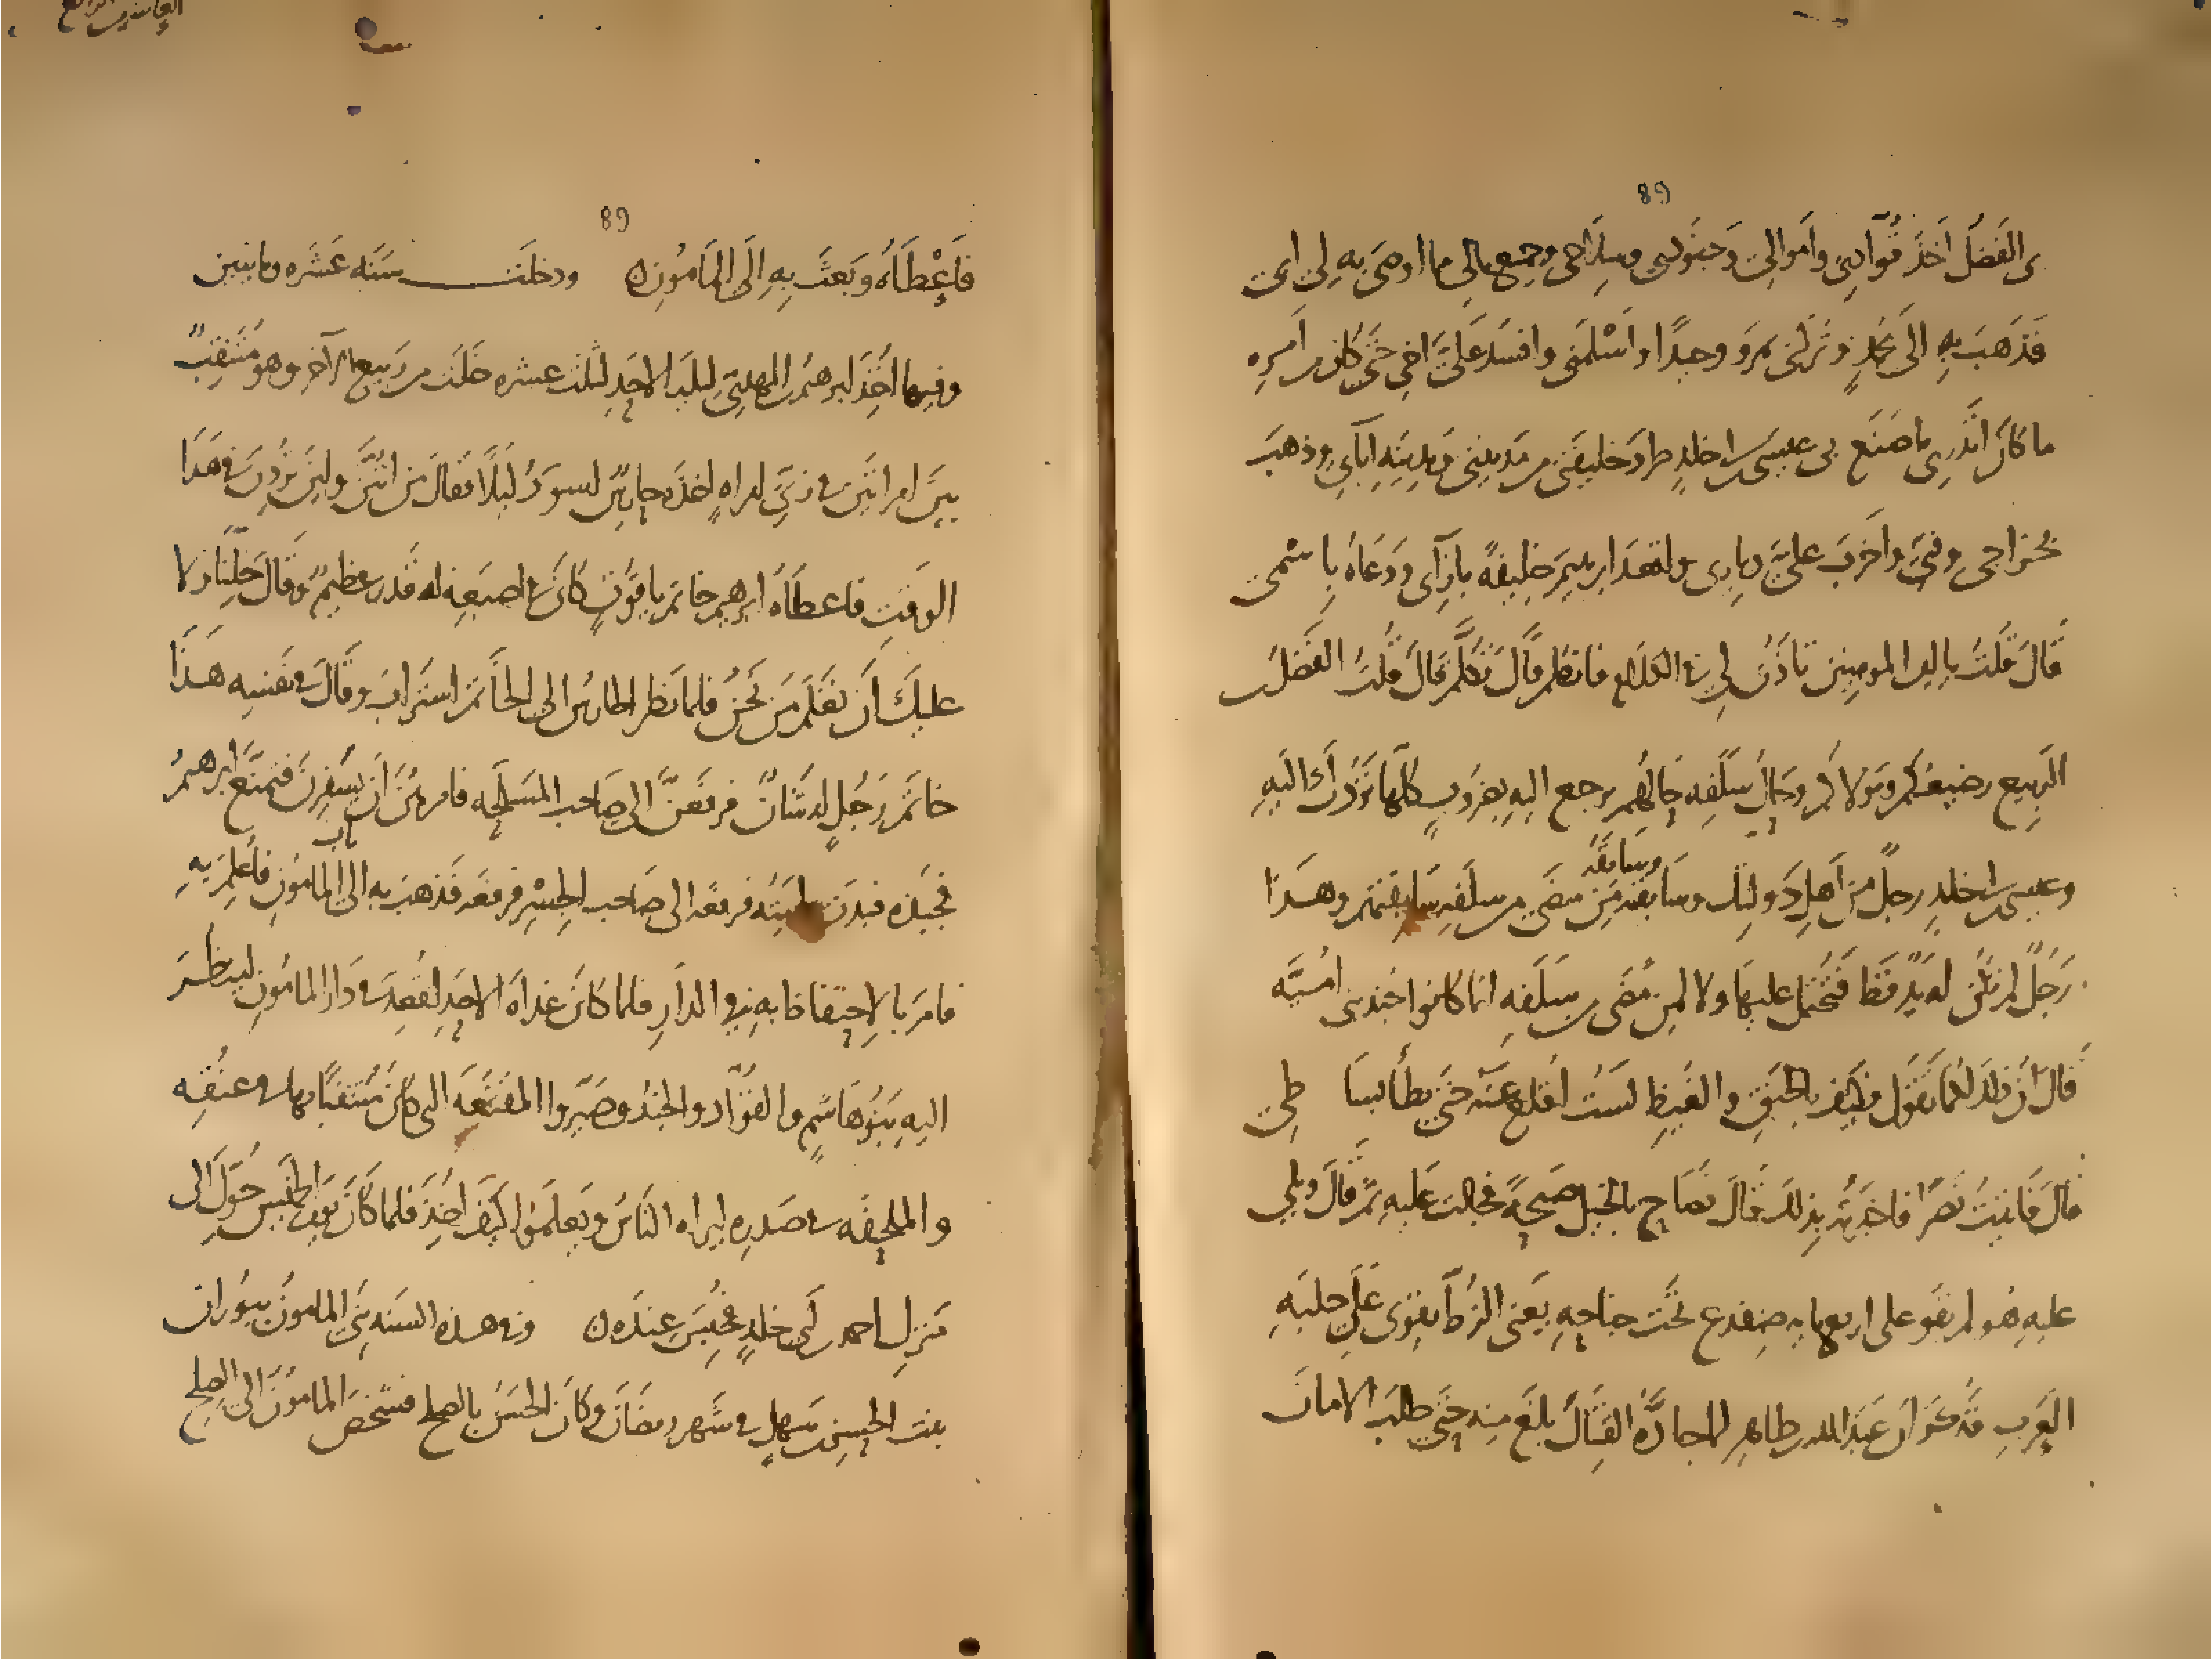 89
بن الفضل اخذ قُوّادِي وأموالي وجنودي وسلاحي وجميع مالي مما اوصى به لي ابي
فذهبَ به الى محمدٍ وتركني بمرو وحيدًا واسْلَمَني وافسَدَ علىَّ اخي حتى كان من امرِه
ما كان اتدري ما صَنَع بي عيسى بن ابي خلدٍ طرد خليفتي من مدينتي ومدينة اباي وذهبَ
بخراجي وفيّي واخربَ علىَّ دياري واقعدَ ابرهيمَ خليفةً بازآى ودَعَاهُ باسْمي
قال قلتُ يا امير المومنين تاذَنُ لي في الكلام فاتكلم قال تكلَّم قال قلتُ الفضل بن
الرّبيع رضيعُكم ومولاكم وحالُ سلَفِه حالُهم يرجع اليه بضروبٍ كلّها تردُّك اليه
وعيسى بن ابي خلدٍ رجلٌ من اهلِ دَولتِك وسابقته وسابقةُ مَن مضى من سلَفِه سَابقتهم وهذا
رَجُلٌ لم تكُن له يدٌ قط فتُحْتمَل عليها ولا لمن مضى من سلَفِه انما كانوا جُندَ بني اميَّه
قال ان ذلك لكما تقول فكيف بالحنَقِ والغيظِ لستُ اُقلع عنه حتى يطأ بسَاطي
قال فأتيتُ نصرًا فاخبرتُه بذلك قال فصاح بالخيل صيحةً فجالت عليه ثم قال ويلي
عليه هُو لم يقو على اربعمايه ضِفدع تحْت جناحِه يعني الزُطّ يقوى على حلبَةِ
العَرب فذكر ان عبد الله بن طاهرٍ لما جادَّهُ القتال بلغ منه حتى طلبَ الامان
89
فأعْطاهُ وبعثَ به الى المامون ودخلت سنه عشره ومايتين
وفيها اُخِذَ ابرهيم بن المهدي ليلة الاحد لثلث عشره خلَت من ربيع الآخر وهو متنقبٌ
بين امراتين في زيّ امراهٍ اخذه حارسٌ اسود ليلًا فقال من انتنَّ واين تردن في هذا
الوقت فاعطاه ابرهيم خاتم ياقوتٍ كان في اصبعه له قدر عظيم وقال خلّنا ولا
عليك أن تعلم من نحنُ فلما نظر الحارسُ الى الخاتم استراب وقال في نفسه هذا
خاتم رَجُلٍ له شانٌ فرفعهنَّ الى صاحب المسلحه فامرهُنَّ ان يسفرن فتمنّع ابرهيمُ
فجبذه فبدت لحيتُه فرفعه الى صاحب الجسْر فرفعه فذهب به الى باب المامون فأُعلم به
فامرَ بالاحتفاظ به في الدار فلما كان غداة الاحد اُقعِدَ في دار المامون لينظر
اليه بنو هاشمٍ والقوّاد والجند وصيّروا المقنعة التي كان متنقبًا بها في عنقه
والملحفه في صدره ليراه الناسُ ويعلموا كيف اُخِذ فلما كان يوم الخميس حُوّل الى
منزل احمد بن ابي خلدٍ فحُبِسَ عنده وفي هذه السنه بنى المامونُ ببوران
بنت الحسن بن سهلٍ في شهر رمضان وكان الحسنُ بالصلح فشخص المامونُ الى الصلح